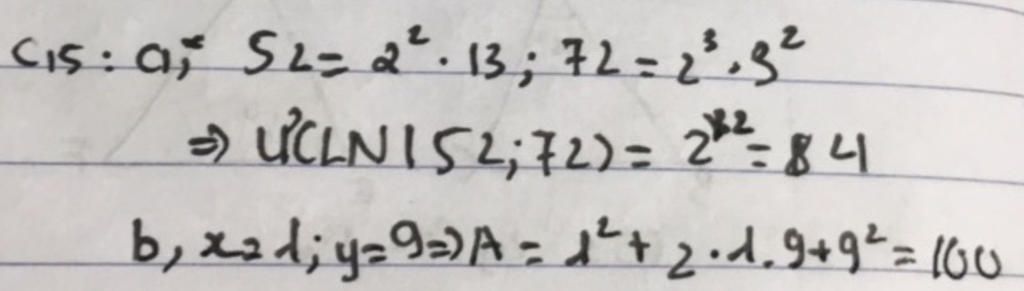 C15: a, 52 = 2² · 13; 72 = 2³ · 3²
⇒ ƯCLN(52; 72) = 2² = 4
b, x = 1; y = 9 ⇒ A = 1² + 2 · 1 . 9 + 9² = 100